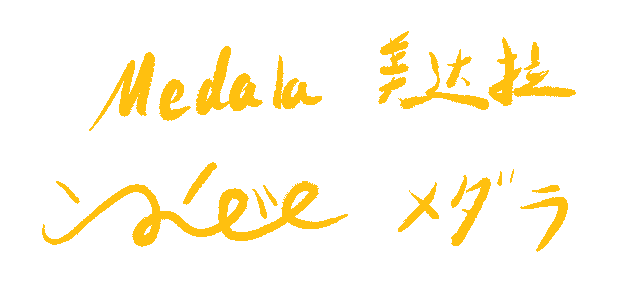 Medala 美达拉
メダラ